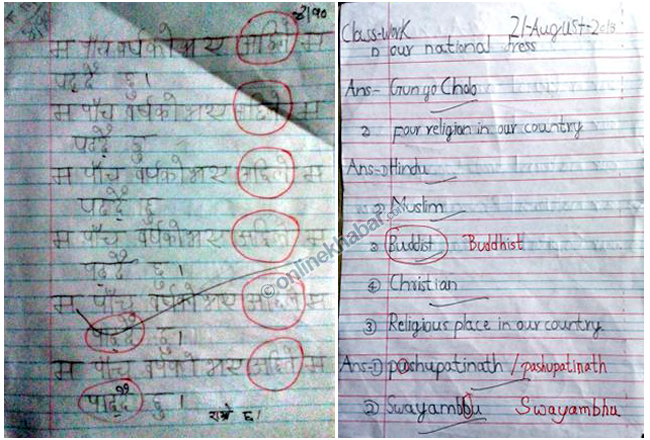 म पाँच वर्षको भए अहिले म
पढ्दै छु।
म पाँच वर्षको भए अहिले म
पढ्दै छु
म पाँच वर्षको भए अहिले म
पढ्दै छु
म पाँच वर्षको भए अहिले म
पढ्दै छु।
म पाँच वर्षको भए अहिले म
पाढ्दै छु।
म पाँच वर्षको भए अहिले म
पाढ्दै छु।
राम्रो छ।
© onlinekhabar.com
Class-work 21-August
1) our national Dress
Ans- Gunyo Cholo
2 Four religion in our country
Ans-① Hindu
② Muslim
3 Buddist Buddhist
④ Christian
③ Religious place in our country.
Ans-① pashupatinath / pashupatinath
② Swayambbu Swayambhu